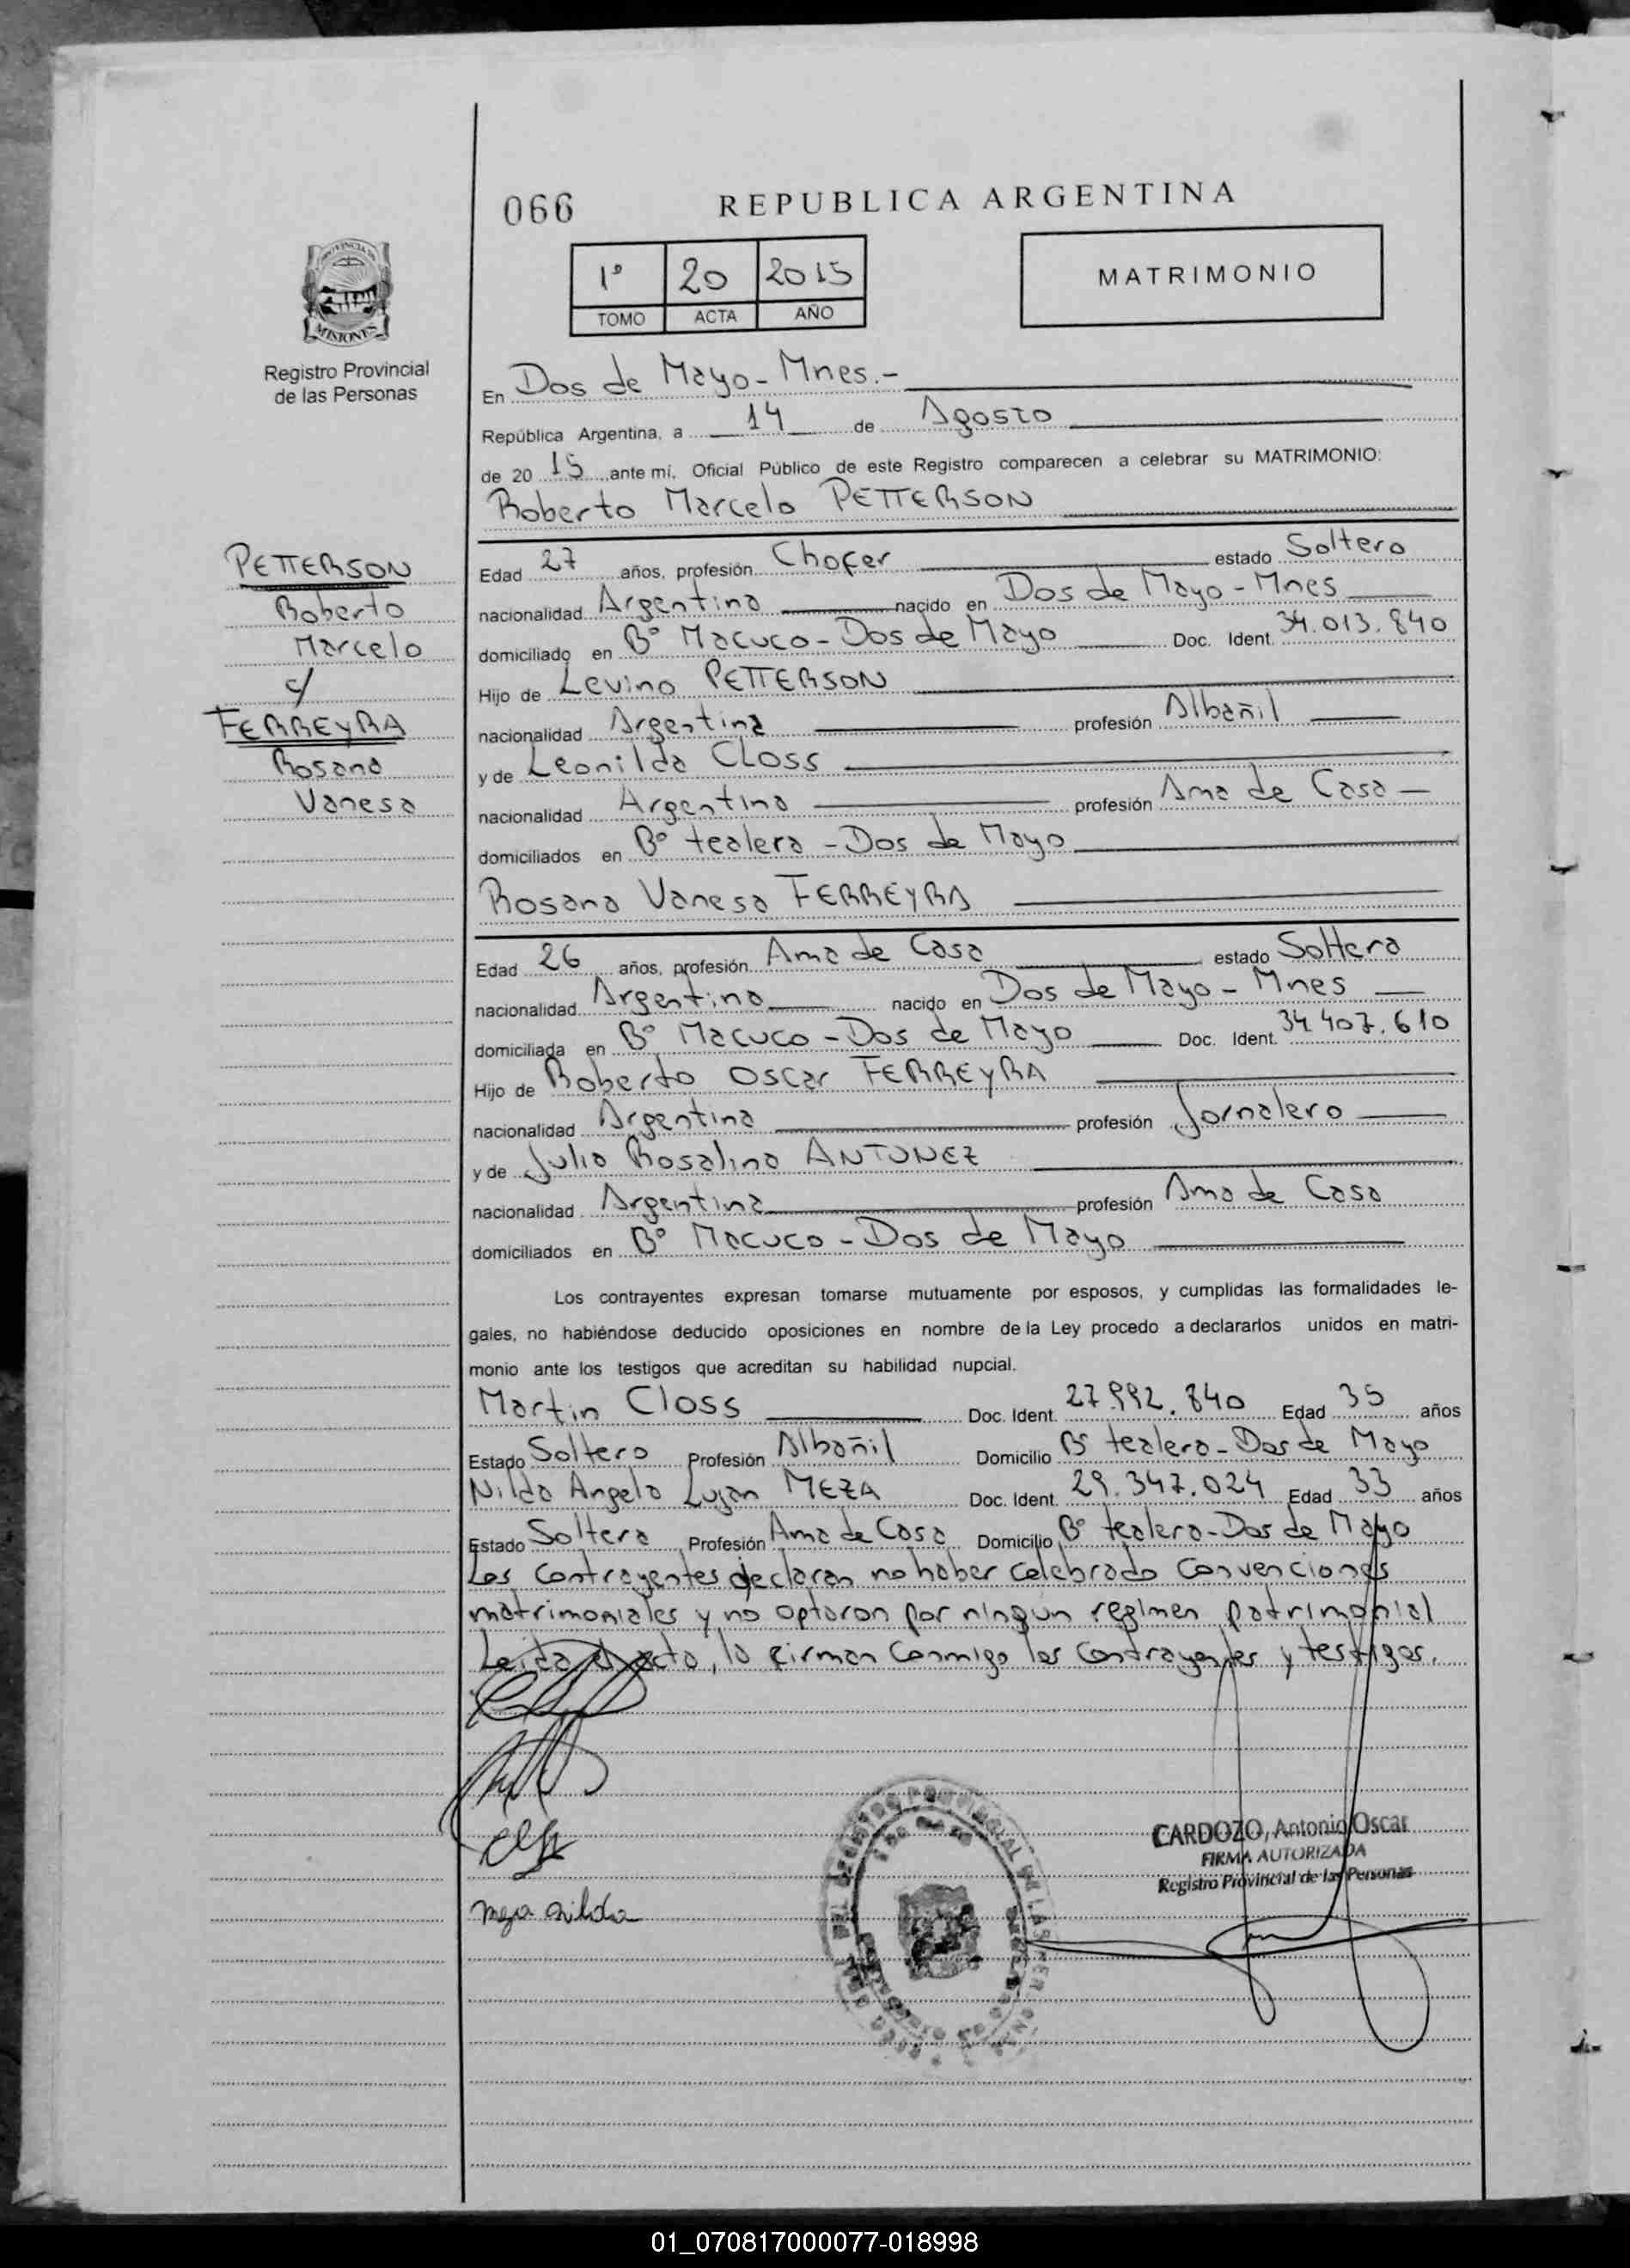 066
REPUBLICA ARGENTINA
PROVINCIA DE
MISIONES
Registro Provincial
de las Personas
1º 20 2015
TOMO ACTA AÑO
MATRIMONIO
En Dos de Mayo - Mnes.-
República Argentina, a 14 de Agosto
de 20 15 ante mí, Oficial Público de este Registro comparecen a celebrar su MATRIMONIO:
Roberto Marcelo PETTERSON
PETTERSON
Roberto
Marcelo
c/
FERREYRA
Rosana
Vanesa
Edad 27 años, profesión Chofer estado Soltero
nacionalidad Argentina nacido en Dos de Mayo - Mnes
domiciliado en Bº Macuco - Dos de Mayo Doc. Ident. 34.013.840
Hijo de Levino PETTERSON
nacionalidad Argentina profesión Albañil
y de Leonilda CLOSS
nacionalidad Argentina profesión Ama de Casa
domiciliados en Bº tealera - Dos de Mayo
Rosana Vanesa FERREYRA
Edad 26 años, profesión Ama de Casa estado Soltera
nacionalidad Argentina nacido en Dos de Mayo - Mnes
domiciliada en Bº Macuco - Dos de Mayo Doc. Ident. 34.407.610
Hijo de Roberto Oscar FERREYRA
nacionalidad Argentina profesión Jornalero
y de Julia Rosalina ANTUNEZ
nacionalidad Argentina profesión Ama de Casa
domiciliados en Bº Macuco - Dos de Mayo
Los contrayentes expresan tomarse mutuamente por esposos, y cumplidas las formalidades le-
gales, no habiéndose deducido oposiciones en nombre de la Ley procedo a declararlos unidos en matri-
monio ante los testigos que acreditan su habilidad nupcial.
Martin Closs Doc. Ident. 27.992.840 Edad 35 años
Estado Soltero Profesión Albañil Domicilio Bº tealera - Dos de Mayo
Nilda Angela Lujan MEZA Doc. Ident. 29.347.024 Edad 33 años
Estado Soltera Profesión Ama de Casa Domicilio Bº tealera - Dos de Mayo
Los contrayentes declaran no haber celebrado convenciones
matrimoniales y no optaron por ningun regimen patrimonial
Leida el acta, la firman conmigo los contrayentes y testigos.
CARDOZO, Antonio Oscar
FIRMA AUTORIZADA
Registro Provincial de las Personas
nilda
01_070817000077-018998